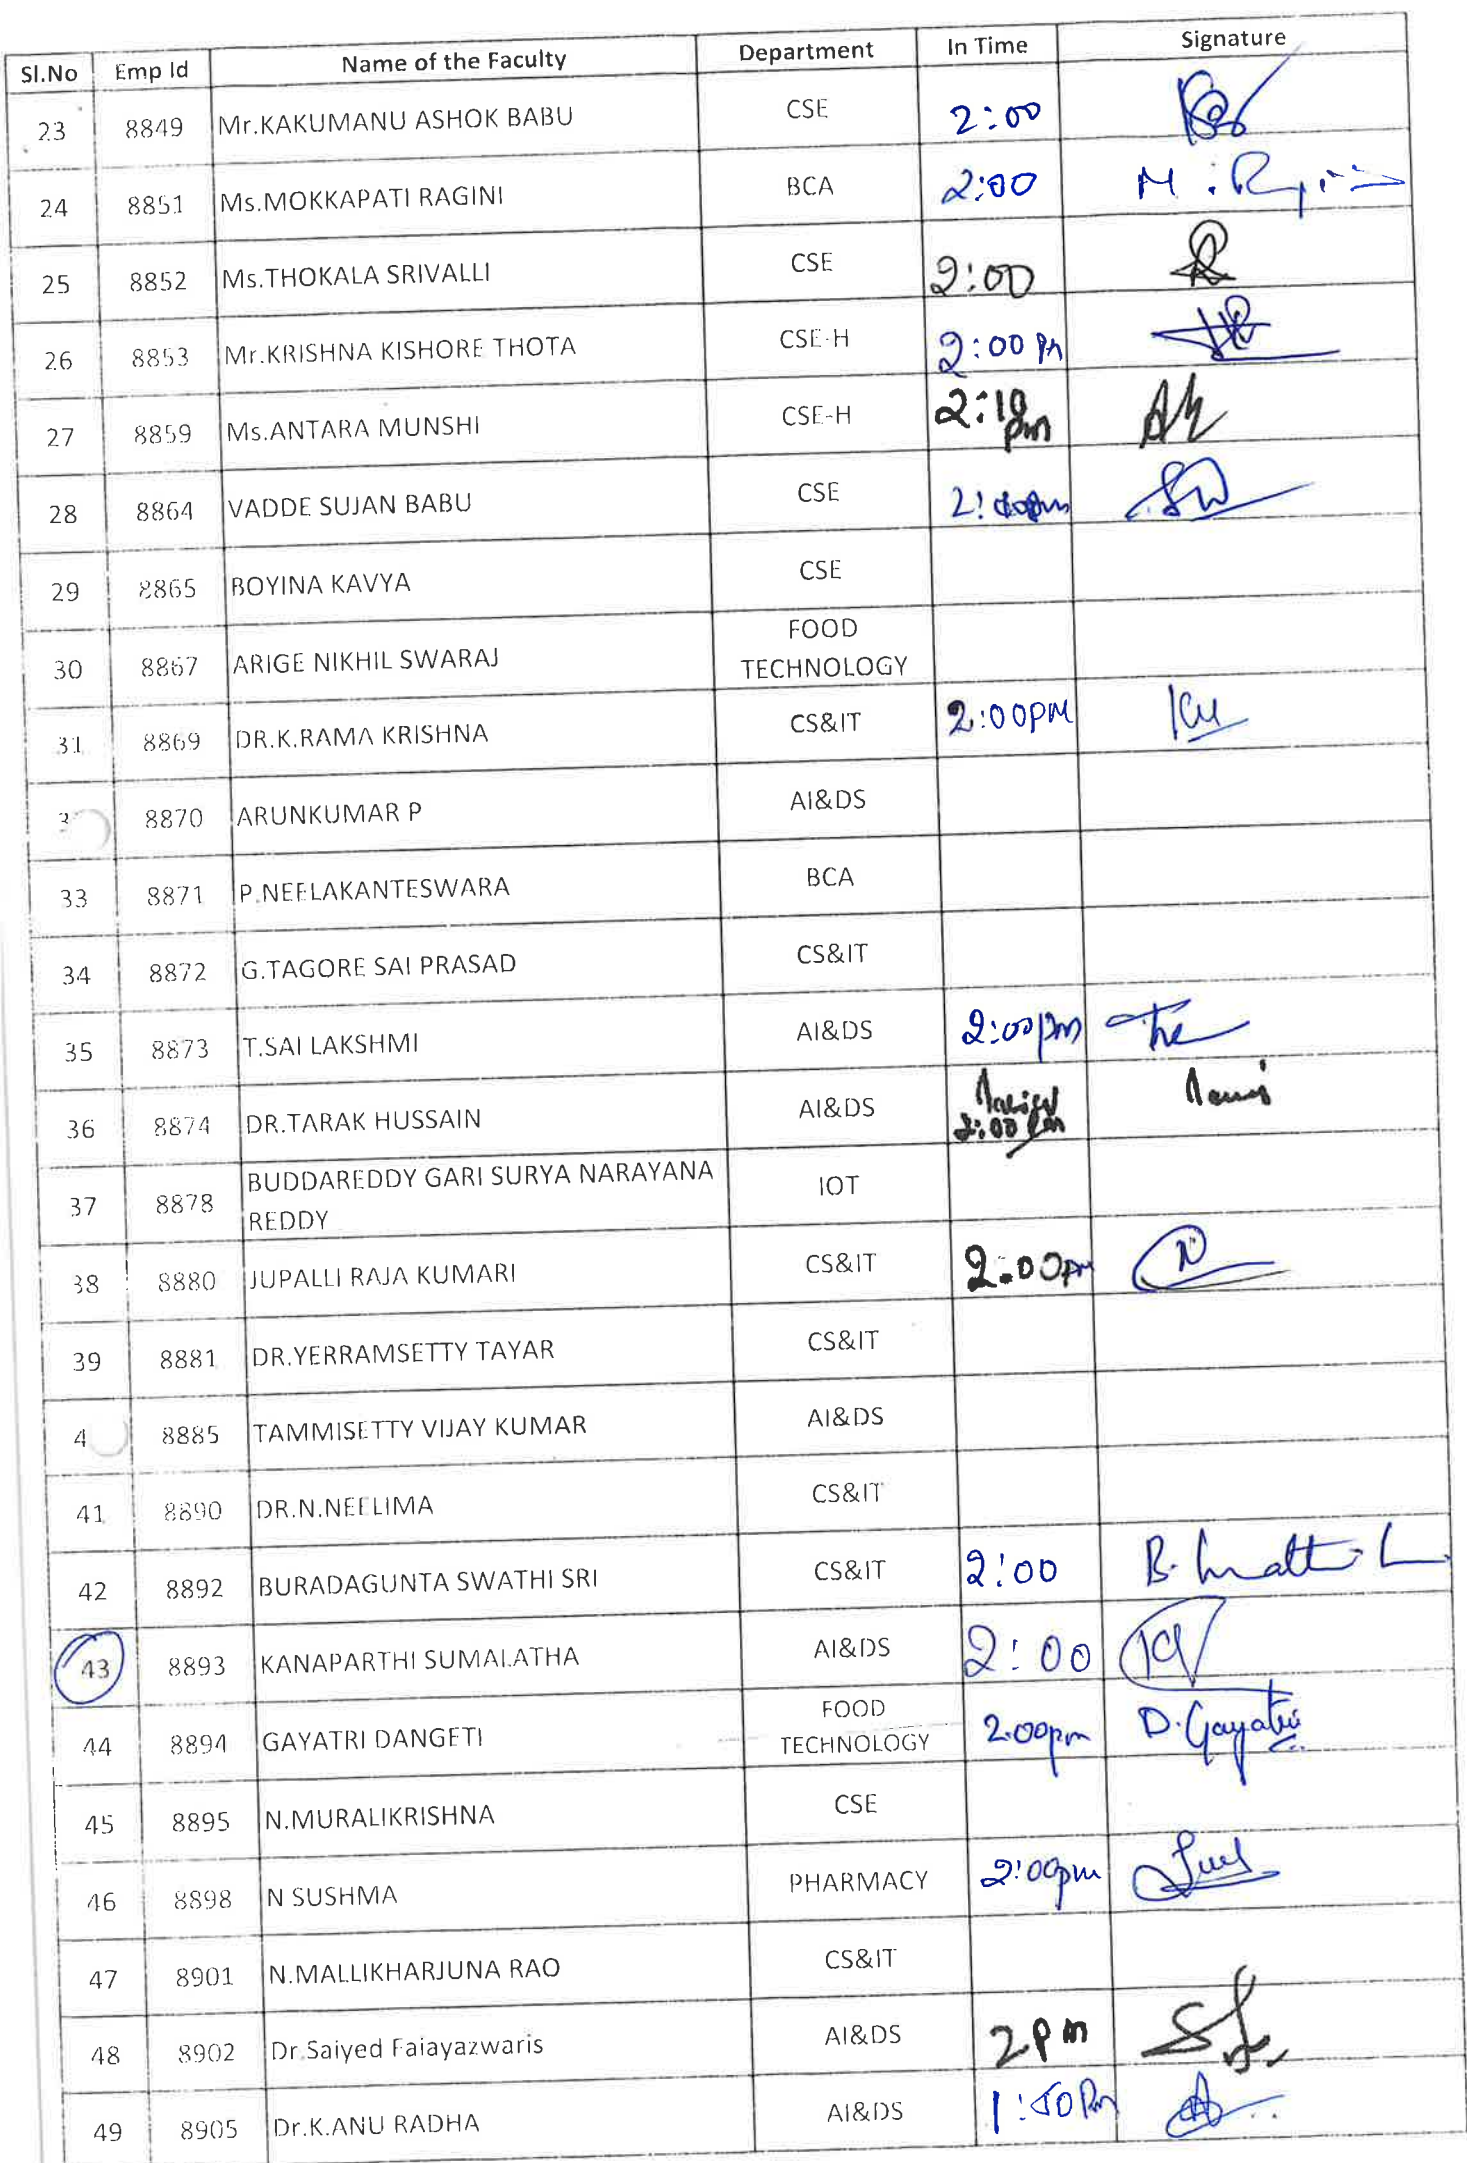 Sl.No Emp Id Name of the Faculty Department In Time Signature
23 8849 Mr.KAKUMANU ASHOK BABU CSE 2:00
24 8851 Ms.MOKKAPATI RAGINI BCA 2:00 M.Ragini
25 8852 Ms.THOKALA SRIVALLI CSE 2:00
26 8853 Mr.KRISHNA KISHORE THOTA CSE-H 2:00 Pm
27 8859 Ms.ANTARA MUNSHI CSE-H 2:10 pm
28 8864 VADDE SUJAN BABU CSE
29 8865 BOYINA KAVYA CSE
30 8867 ARIGE NIKHIL SWARAJ FOOD
TECHNOLOGY
31 8869 DR.K.RAMA KRISHNA CS&IT 2:00PM
3 8870 ARUNKUMAR P AI&DS
33 8871 P.NEELAKANTESWARA BCA
34 8872 G.TAGORE SAI PRASAD CS&IT
35 8873 T.SAI LAKSHMI AI&DS 2:00pm
36 8874 DR.TARAK HUSSAIN AI&DS 2:00 Pm
37 8878 BUDDAREDDY GARI SURYA NARAYANA
REDDY IOT
38 8880 JUPALLI RAJA KUMARI CS&IT 2:00PM
39 8881 DR.YERRAMSETTY TAYAR CS&IT
4 8885 TAMMISETTY VIJAY KUMAR AI&DS
41 8890 DR.N.NEELIMA CS&IT
42 8892 BURADAGUNTA SWATHI SRI CS&IT 2:00
43 8893 KANAPARTHI SUMALATHA AI&DS 2:00
44 8894 GAYATRI DANGETI FOOD
TECHNOLOGY 2.00pm D.Gayatri
45 8895 N.MURALIKRISHNA CSE
46 8898 N SUSHMA PHARMACY 2:00pm
47 8901 N.MALLIKHARJUNA RAO CS&IT
48 8902 Dr.Saiyed Faiayazwaris AI&DS 2pm
49 8905 Dr.K.ANU RADHA AI&DS 1:50Pm